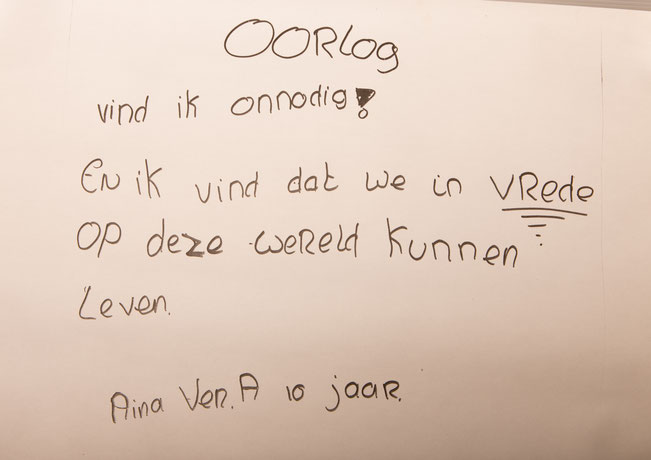 OORLOG
vind ik onnodig!
EN ik vind dat we in VRede
OP deze weReld kunnen
Leven.
Aina Ven.A 10 jaaR.